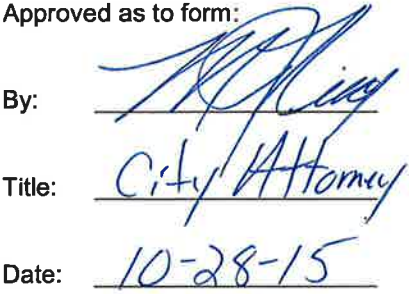 Approved as to form:
By:
Title: City Attorney
Date: 10-28-15